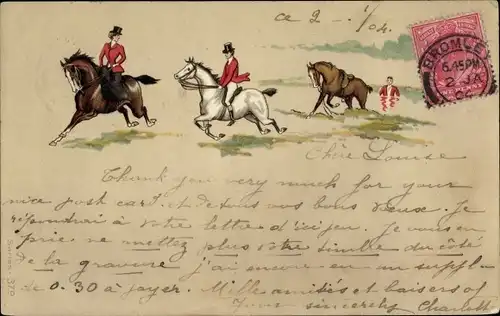 ce 2 - 1/04.
BROMLEY
5.45PM
2 JA
Chère Louise
Thank you very much for your
nice post card et de tous vos bons vœux. Je
répondrai à votre lettre d'ici jeu. Je vous en
prie ne mettez plus votre timbre du côté
de la gravure j'ai encore eu un suppl-
de 0.30 à payer. Mille amitiés et baisers of
Your sincerely Charlott
Series. 370